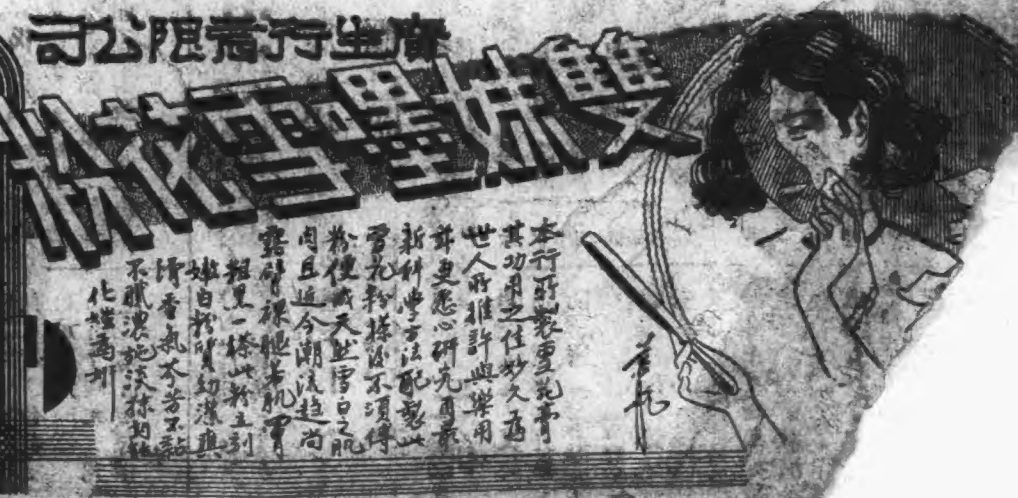 廣生行有限公司
雙妹嘜雪花粉
本行所製雪花膏
其功用之佳妙久為
世人所推許與樂用
茲更悉心研究用最
新科學方法配製此
雪花粉搽後不須傅
粉便成天然雪白之肌
肉且近今潮流趨尚
露臂裸腿若肌膚
粗黑一搽此粉立刻
嫩白粉質幼潔
滑香氣芬芳不黏
不膩濃施淡抹均能
化媸為妍